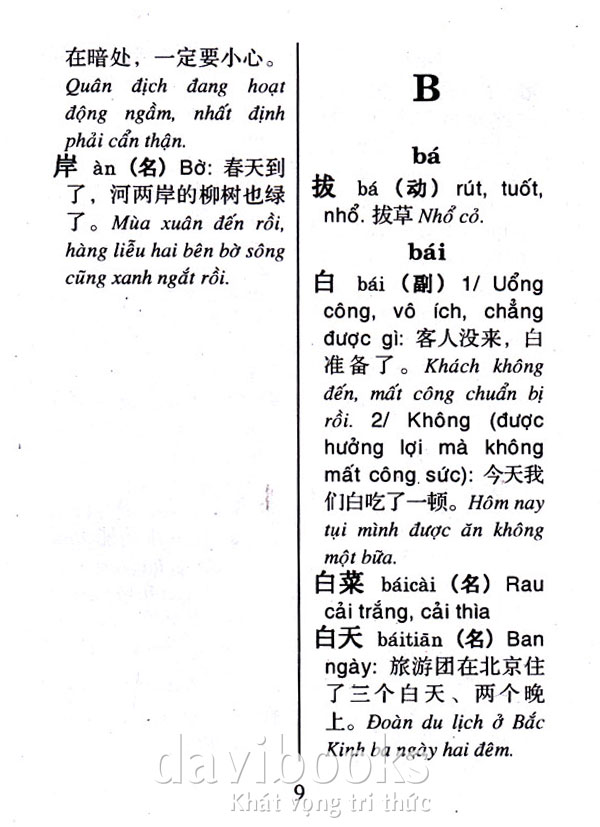 在暗处，一定要小心。
Quân địch đang hoạt
động ngầm, nhất định
phải cẩn thận.
岸 àn（名）Bờ: 春天到
了，河两岸的柳树也绿
了。Mùa xuân đến rồi,
hàng liễu hai bên bờ sông
cũng xanh ngắt rồi.
B
bá
拔 bá（动）rút, tuốt,
nhổ. 拔草 Nhổ cỏ.
bái
白 bái（副）1/ Uổng
công, vô ích, chẳng
được gì: 客人没来，白
准备了。Khách không
đến, mất công chuẩn bị
rồi. 2/ Không (được
hưởng lợi mà không
mất công sức): 今天我
们白吃了一顿。Hôm nay
tụi mình được ăn không
một bữa.
白菜 báicài（名）Rau
cải trắng, cải thìa
白天 báitiān（名）Ban
ngày: 旅游团在北京住
了三个白天、两个晚
上。Đoàn du lịch ở Bắc
Kinh ba ngày hai đêm.
davibooks
Khát vọng tri thức
9